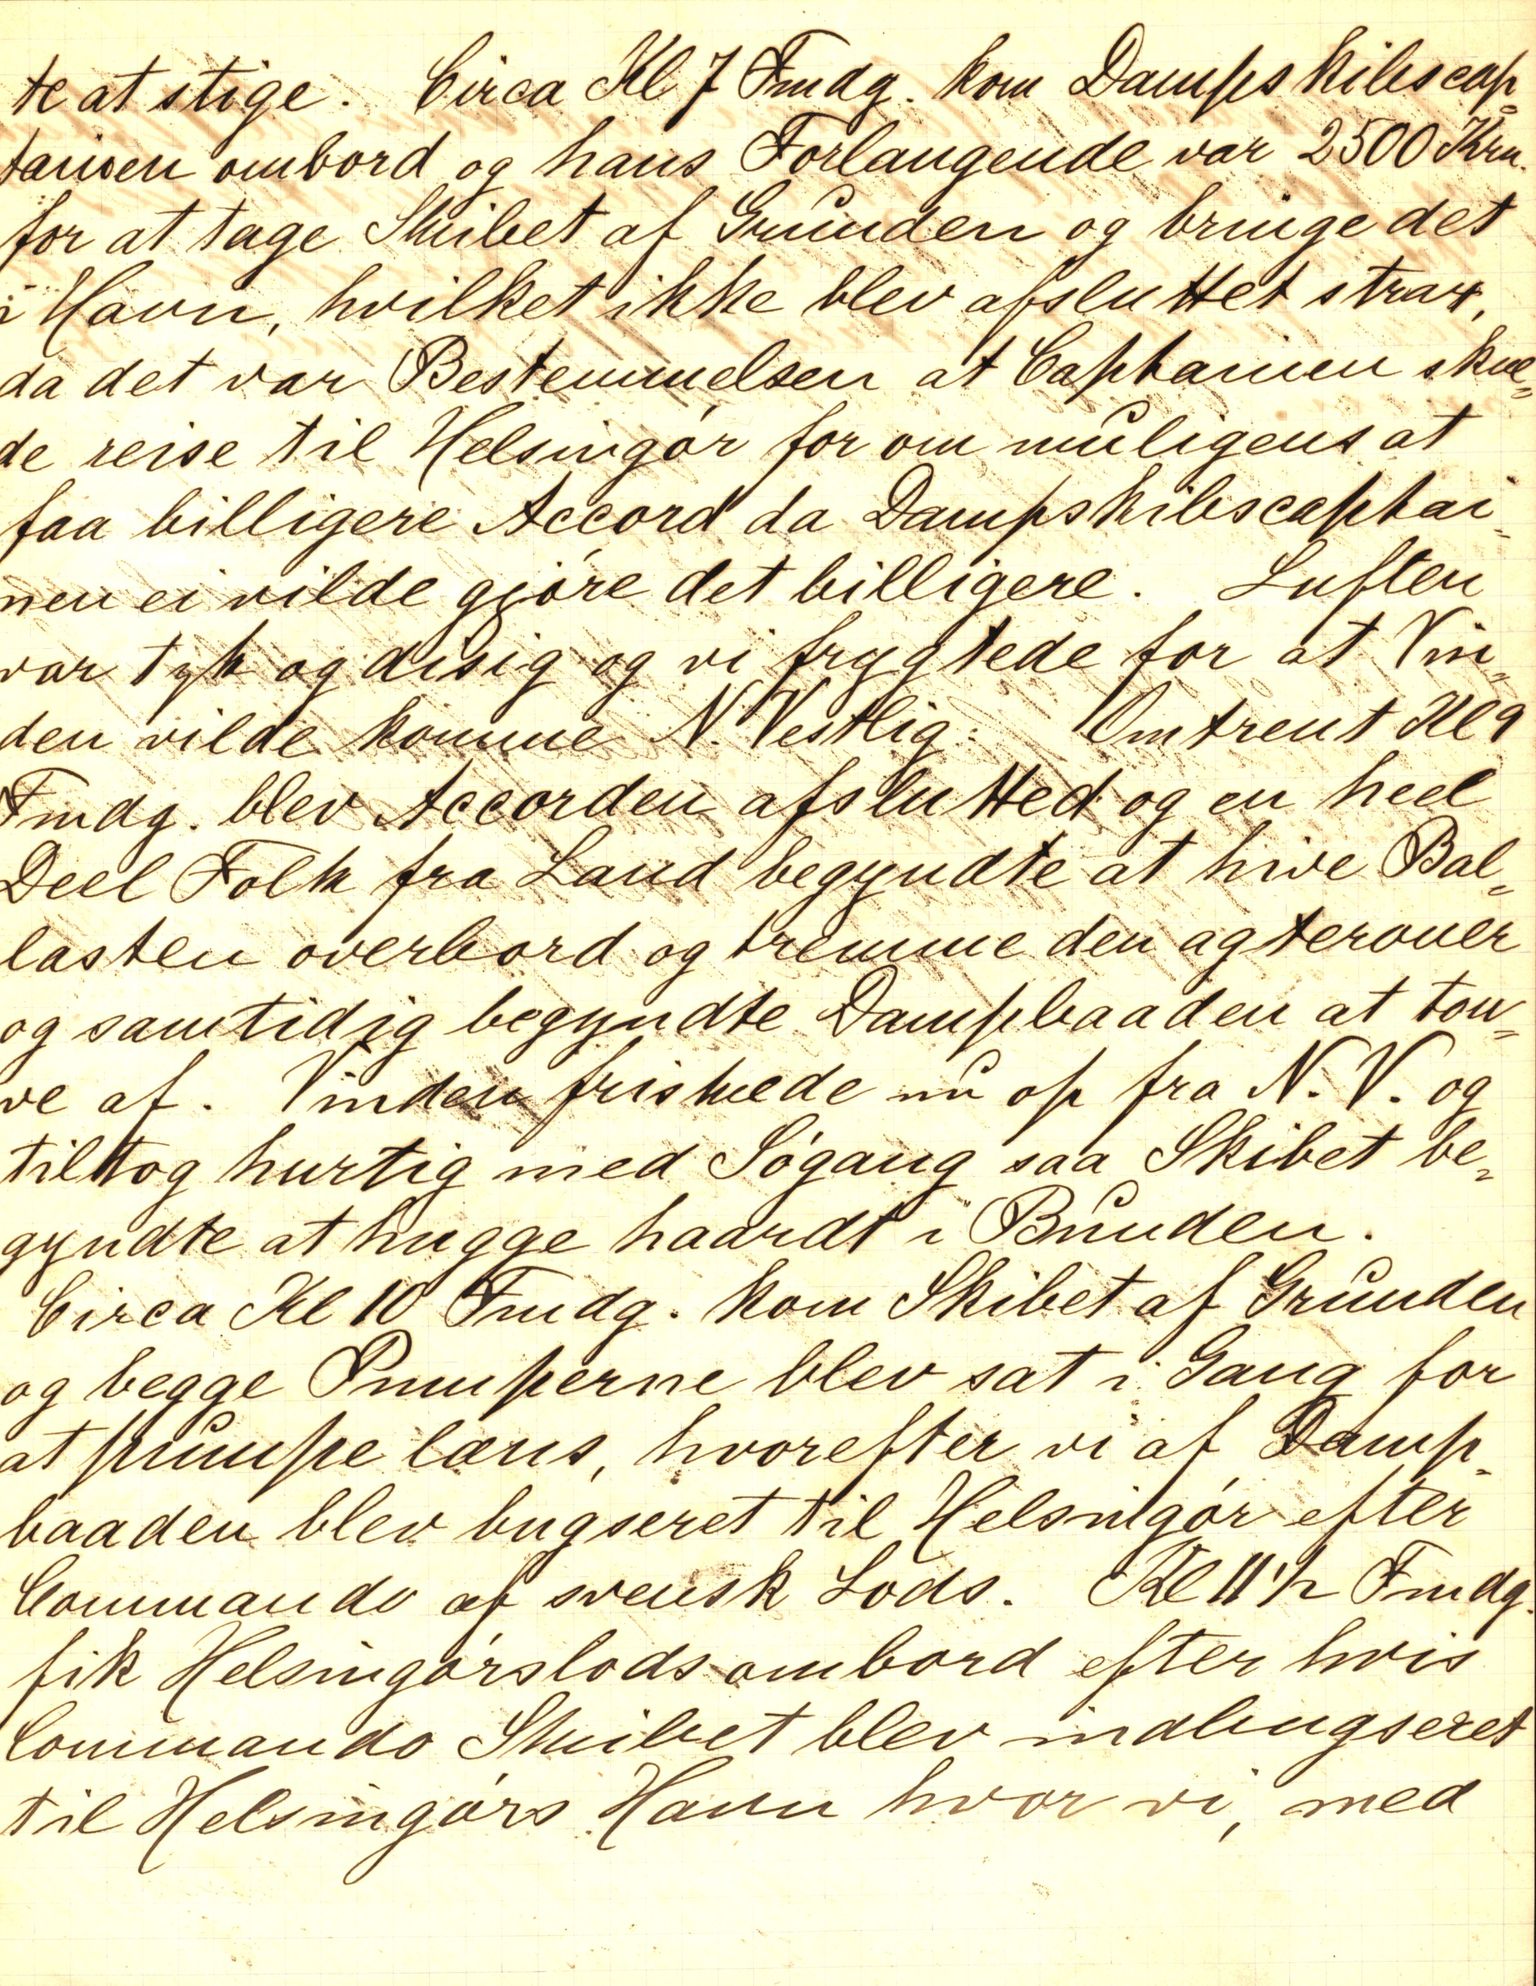 te at stige. Circa Kl 7 Fmdg. kom Dampskibscap-
tainen ombord og hans Forlangende var 2500 Krn.
for at tage Skibet af Grunden og bringe det
i Havn, hvilket ikke blev afsluttet strax,
da det var Bestemmelsen at Captainen skul-
de reise til Helsingør for om muligens at
faa billigere Accord da Dampskibscaptai-
nen ei vilde gjøre det billigere. Luften
var tyk og disig og vi frygtede for at Vin-
den vilde komme N. Vestlig. Omtrent Kl 9
Fmdg. blev Accorden afslutted og en heel
Deel Folk fra Land begyndte at hive Bal-
lasten overbord og lremme den agterover
og samtidig begyndte Dampbaaden at tou-
ve af. Vinden friskede nu op fra N. V. og
tiltog hurtig med Søgang saa Skibet be-
gyndte at hugge haardt i Bunden.
Circa Kl 10 Fmdg. kom Skibet af Grunden
og begge Pumperne blev sat i Gang for
at pumpe læns, hvorefter vi af Damp-
baaden blev bugseret til Helsingør efter
Commando af svensk Lods. Kl 11 1/2 Fmdg.
fik Helsingørslods ombord efter hvis
Commando Skibet blev indbugseret
til Helsingørs Havn hvor vi, med